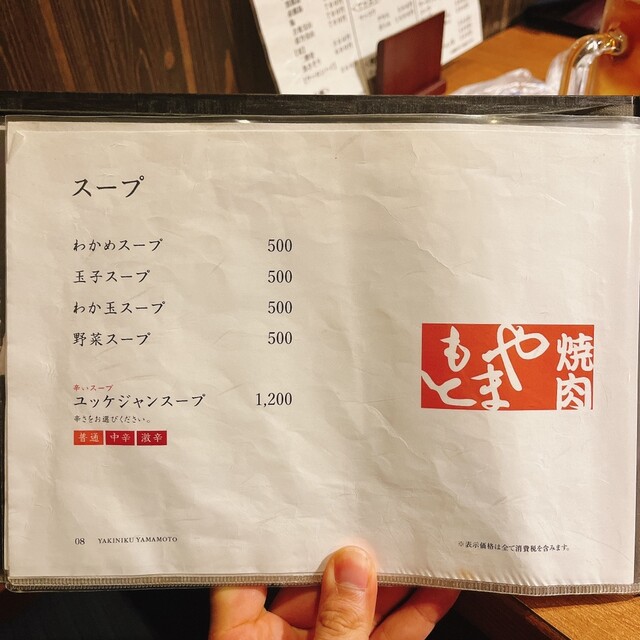 スープ
わかめスープ 500
玉子スープ 500
わか玉スープ 500
野菜スープ 500
辛いスープ
ユッケジャンスープ 1,200
辛さをお選びください。
普通 中辛 激辛
焼肉
やまもと
08 YAKINIKU YAMAMOTO
※表示価格は全て消費税を含みます。